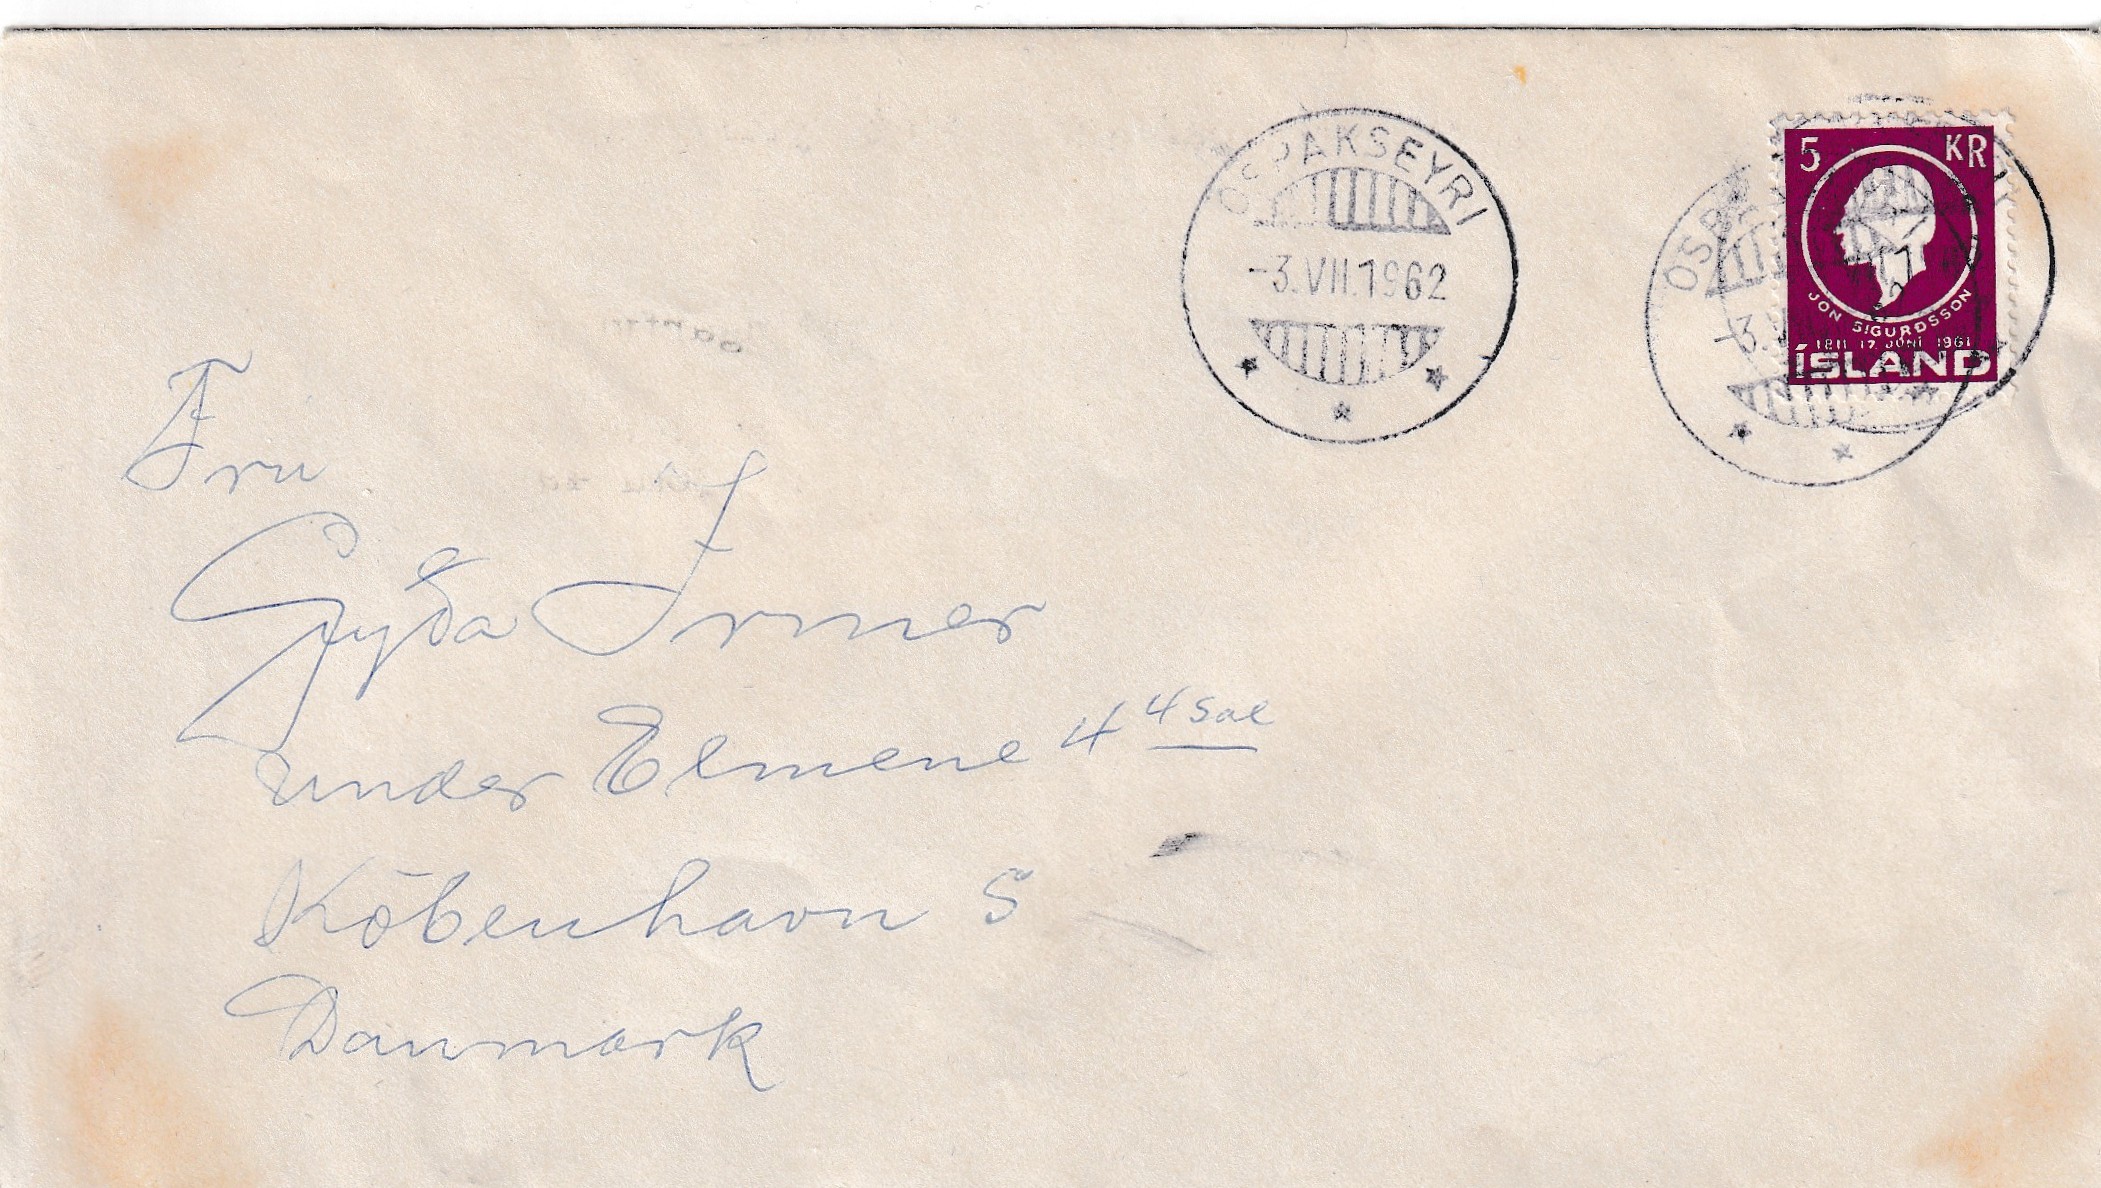 OSPAKSEYRI
-3.VII.1962
5 KR
JÓN SIGURÐSSON
1811 17. JÚNÍ 1961
ÍSLAND
OSP
-3.V
Fru
Gyða Irmer
under Elmene 4 4 Sal
Köbenhavn S
Danmark